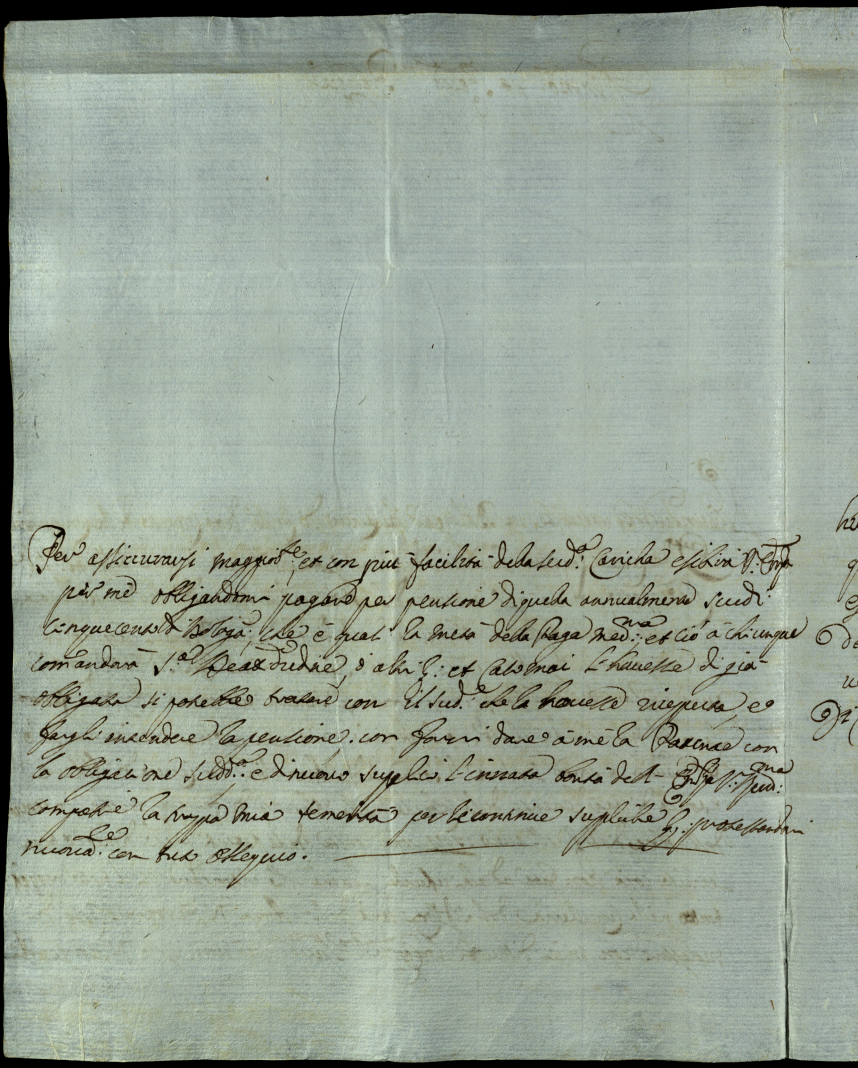 Per assicurarsi maggior.te, et con più facilità dela sud.a Caricha esibirà V: Em.za
per me obligandomi pagare per pensione di quela annualmente scudi
cinquecento di Bologa, che è quasi la metà della Paga med.ma: et ciò à chiunque
comanderà S.a Beatitudine, ò altri: et Caso mai l'havesse di già
obligata si potrebbe tratare con il sud.o che la havesse riceputa, e
fargli intendere la pensione, con farmi dare à me la Patente con
la obligatione sudd.a: e di nuovo supplico l'innata bontà dell' Em.za V: Rev.ma:
compatire la troppa mia temerità per le continue suppliche, protestandomi
nuovam.te con tuto ossequio.